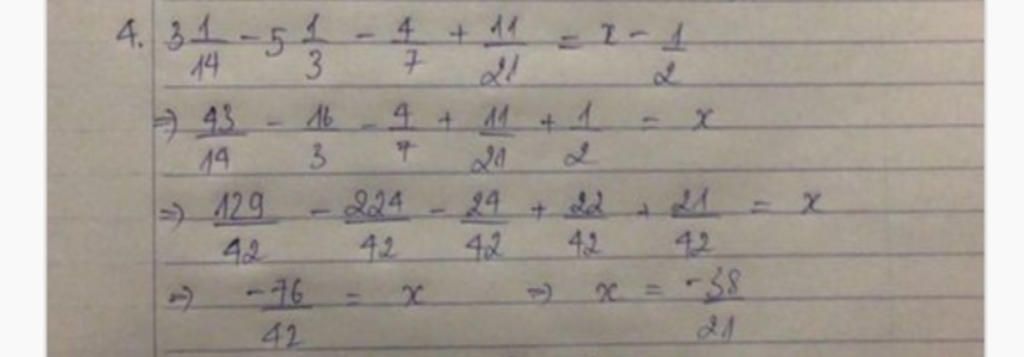 4. 3 1/14 - 5 1/3 - 4/7 + 11/21 = x - 1/2
=> 43/14 - 16/3 - 4/7 + 11/21 + 1/2 = x
=> 129/42 - 224/42 - 24/42 + 22/42 + 21/42 = x
=> -76/42 = x => x = -38/21